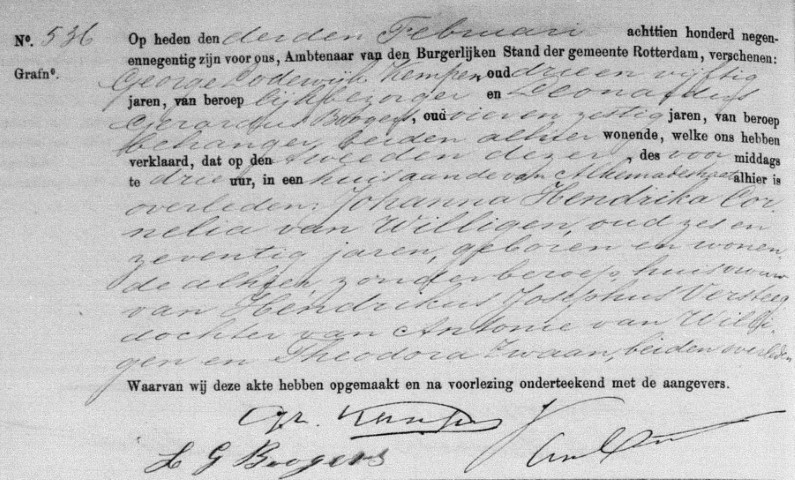 Nº. 536 Op heden den derden Februari achttien honderd negen-
ennegentig zijn voor ons, Ambtenaar van den Burgerlijken Stand der gemeente Rotterdam, verschenen:
Grafnº. George Lodewijk Kempen, oud drie en vijftig
jaren, van beroep lijkbezorger en Leonardus
Gerardus Boogers, oud vier en zestig jaren, van beroep
behanger, beiden alhier wonende, welke ons hebben
verklaard, dat op den tweeden dezer, des voor middags
te drie uur, in een huis aan de van Alkemadestraat alhier is
overleden: Johanna Hendrika Cor-
nelia van Willigen, oud zes en
zeventig jaren, geboren en wonen-
de alhier, zonder beroep, huisvrouw
van Hendrikus Josephus Versteeg
dochter van Antonie van Willi-
gen en Theodora Zwaan, beiden overleden
Waarvan wij deze akte hebben opgemaakt en na voorlezing onderteekend met de aangevers.
L G Boogers